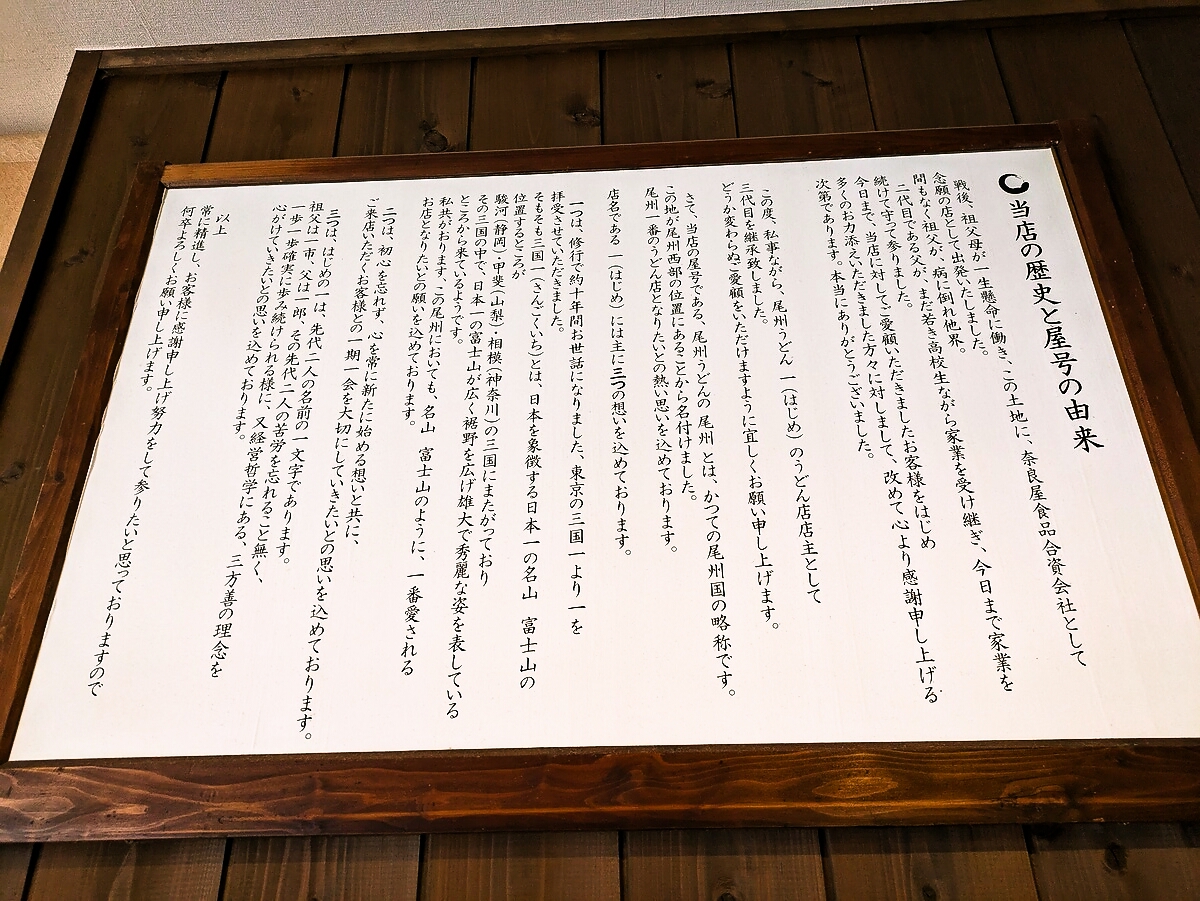 当店の歴史と屋号の由来
戦後、祖父母が一生懸命に働き、この土地に、奈良屋食品合資会社として
念願の店として出発いたしました。
間もなく祖父が、病に倒れ他界。
二代目である父が、まだ若き高校生ながら家業を受け継ぎ、今日まで家業を
続けて守って参りました。
今日まで、当店に対してご愛顧いただきましたお客様をはじめ
多くのお力添えいただきました方々に対しまして、改めて心より感謝申し上げる
次第であります。本当にありがとうございました。
この度、私事ながら、尾州うどん 一(はじめ)のうどん店店主として
三代目を継承致しました。
どうか変わらぬご愛顧をいただけますように宜しくお願い申し上げます。
さて、当店の屋号である、尾州うどんの 尾州 とは、かつての尾州国の略称です。
この地が尾州西部の位置にあることから名付けました。
尾州一番のうどん店となりたいとの熱い思いを込めております。
店名である 一(はじめ)には主に三つの想いを込めております。
一つは、修行で約十年間お世話になりました、東京の三国一より一を
拝受させていただきました。
そもそも三国一(さんごくいち)とは、日本を象徴する日本一の名山 富士山の
位置するところが
駿河(静岡)・甲斐(山梨)・相模(神奈川)の三国にまたがっており
その三国の中で、日本一の富士山が広く裾野を広げ雄大で秀麗な姿を表している
ところから来ているようです。
私共がおります、この尾州においても、名山 富士山のように、一番愛される
お店となりたいとの願いを込めております。
二つは、初心を忘れず、心を常に新たに始める想いと共に、
ご来店いただくお客様との一期一会を大切にしていきたいとの思いを込めております。
三つは、はじめの一は、先代二人の名前の一文字であります。
祖父は一市、父は一郎、その先代二人の苦労を忘れること無く、
一歩一歩確実に歩み続けられる様に、又経営哲学にある、三方善の理念を
心がけていきたいとの思いを込めております。
以上
常に精進し、お客様に感謝申し上げ努力をして参りたいと思っておりますので
何卒よろしくお願い申し上げます。